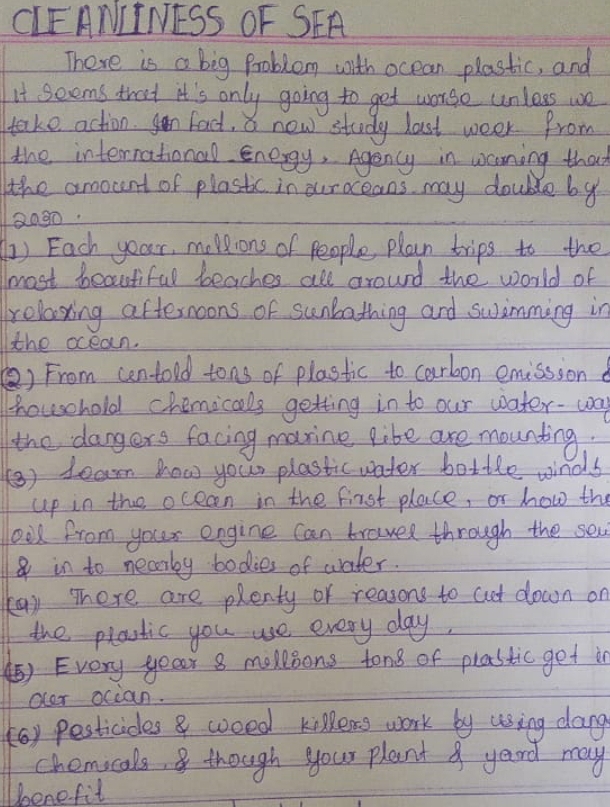 CLEANLINESS OF SEA
There is a big problem with ocean plastic, and
it seems that it's only going to get worse unless we
take action. In fact, a new study last week from
the international Energy, Agency in warning that
the amount of plastic in our oceans may double by
2030.
(1) Each year, millions of people plan trips to the
most beautiful beaches all around the world of
relaxing afternoons of sunbathing and swimming in
the ocean.
(2) From untold tons of plastic to carbon emission &
household chemicals getting in to our water-way
the dangers facing marine life are mounting.
(3) Learn how your plastic water bottle winds
up in the ocean in the first place, or how the
oil from your engine can travel through the sew
& in to nearby bodies of water.
(4) There are plenty of reasons to cut down on
the plastic you use every day.
(5) Every year 8 millions tons of plastic get in
our ocian.
(6) Pesticides & weed killers work by using dang
chemicals, & though your plant & yard may
benefit